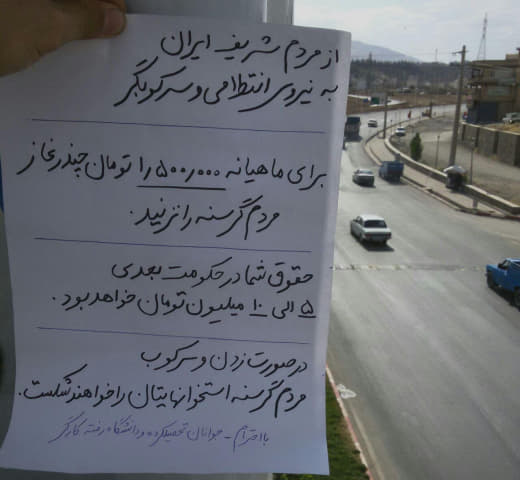 از مردم شریف ایران
به نیروی انتظامی و سرکوبگر
برای ماهیانه ۱٫۵۰۰٫۰۰۰ تومان چندرغاز
مردم گرسنه را نزنید.
حقوق شما در حکومت بعدی
۵ الی ۱۰ میلیون تومان خواهد بود.
در صورت زدن و سرکوب
مردم گرسنه استخوانهایتان را خواهند شکست.
با احترام - جوانان تحصیلکرده و دانشگاه رفته کارگر